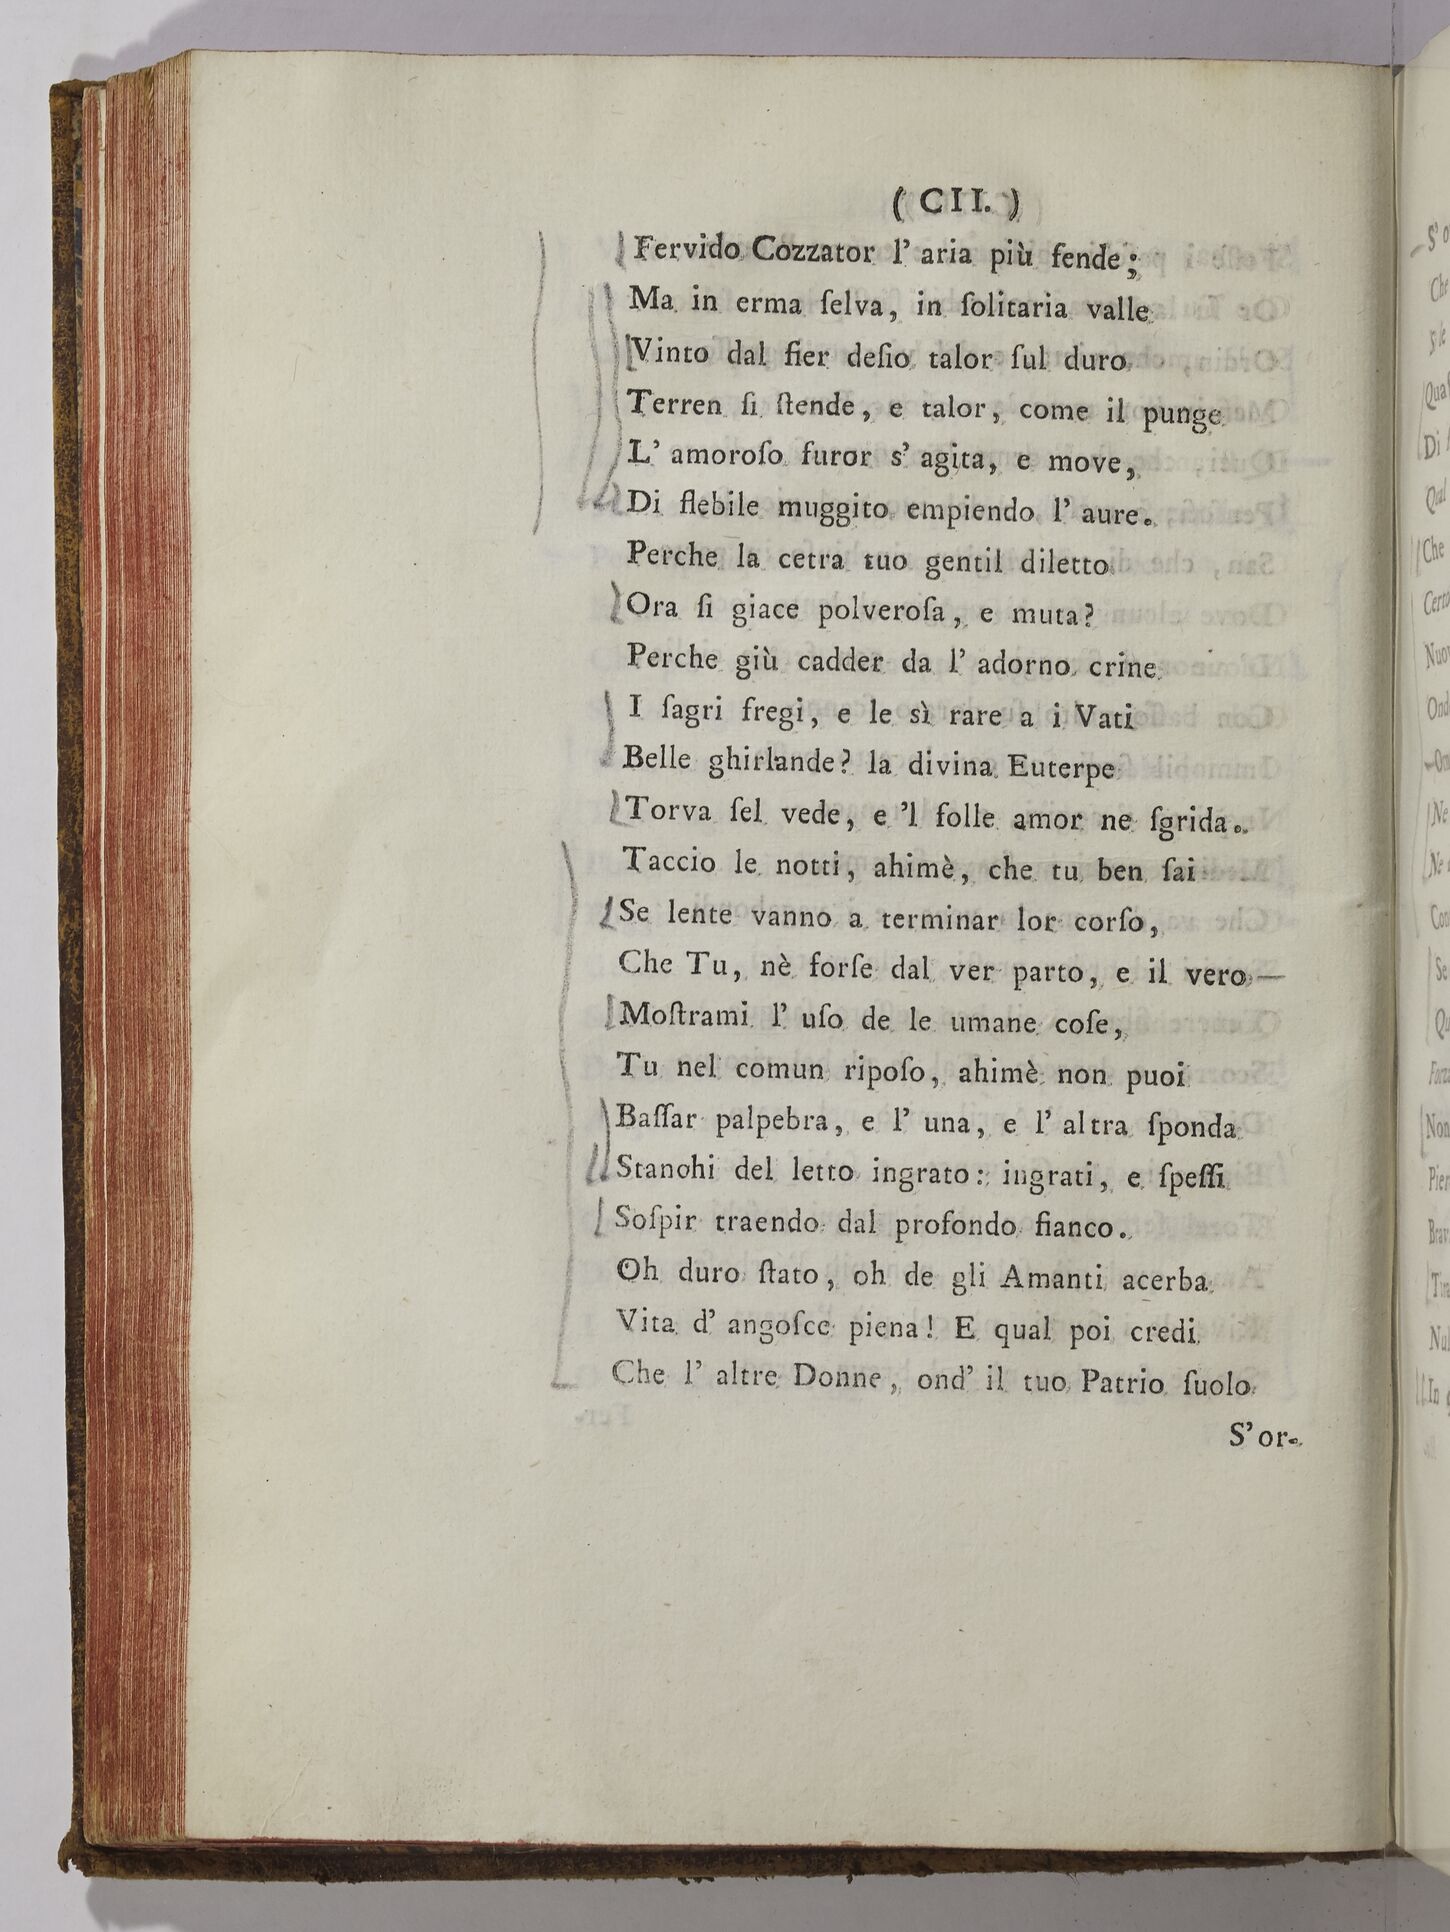 ( CII. )
Fervido Cozzator l' aria più fende;
Ma in erma ſelva, in ſolitaria valle
Vinto dal fier deſio talor ſul duro
Terren ſi ſtende, e talor, come il punge
L' amoroſo furor s' agita, e move,
Di flebile muggito empiendo l' aure.
Perche la cetra tuo gentil diletto
Ora ſi giace polveroſa, e muta?
Perche giù cadder da l' adorno crine
I ſagri fregi, e le sì rare a i Vati
Belle ghirlande? la divina Euterpe
Torva ſel vede, e 'l folle amor ne ſgrida.
Taccio le notti, ahimè, che tu ben ſai
Se lente vanno a terminar lor corſo,
Che Tu, nè forſe dal ver parto, e il vero
Moſtrami l' uſo de le umane coſe,
Tu nel comun ripoſo, ahimè non puoi
Baſſar palpebra, e l' una, e l' altra ſponda
Stanchi del letto ingrato: ingrati, e ſpeſſi
Soſpir traendo dal profondo fianco.
Oh duro ſtato, oh de gli Amanti acerba
Vita d' angoſce piena! E qual poi credi
Che l' altre Donne, ond' il tuo Patrio ſuolo
S'or-